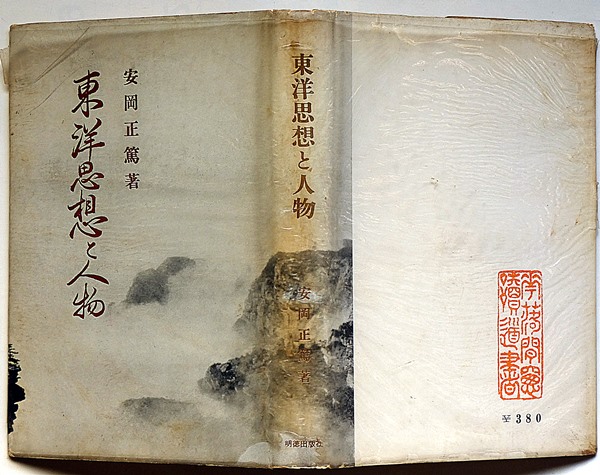 東洋思想と人物
安岡正篤著
東洋思想と人物
安岡正篤著
明徳出版社
380